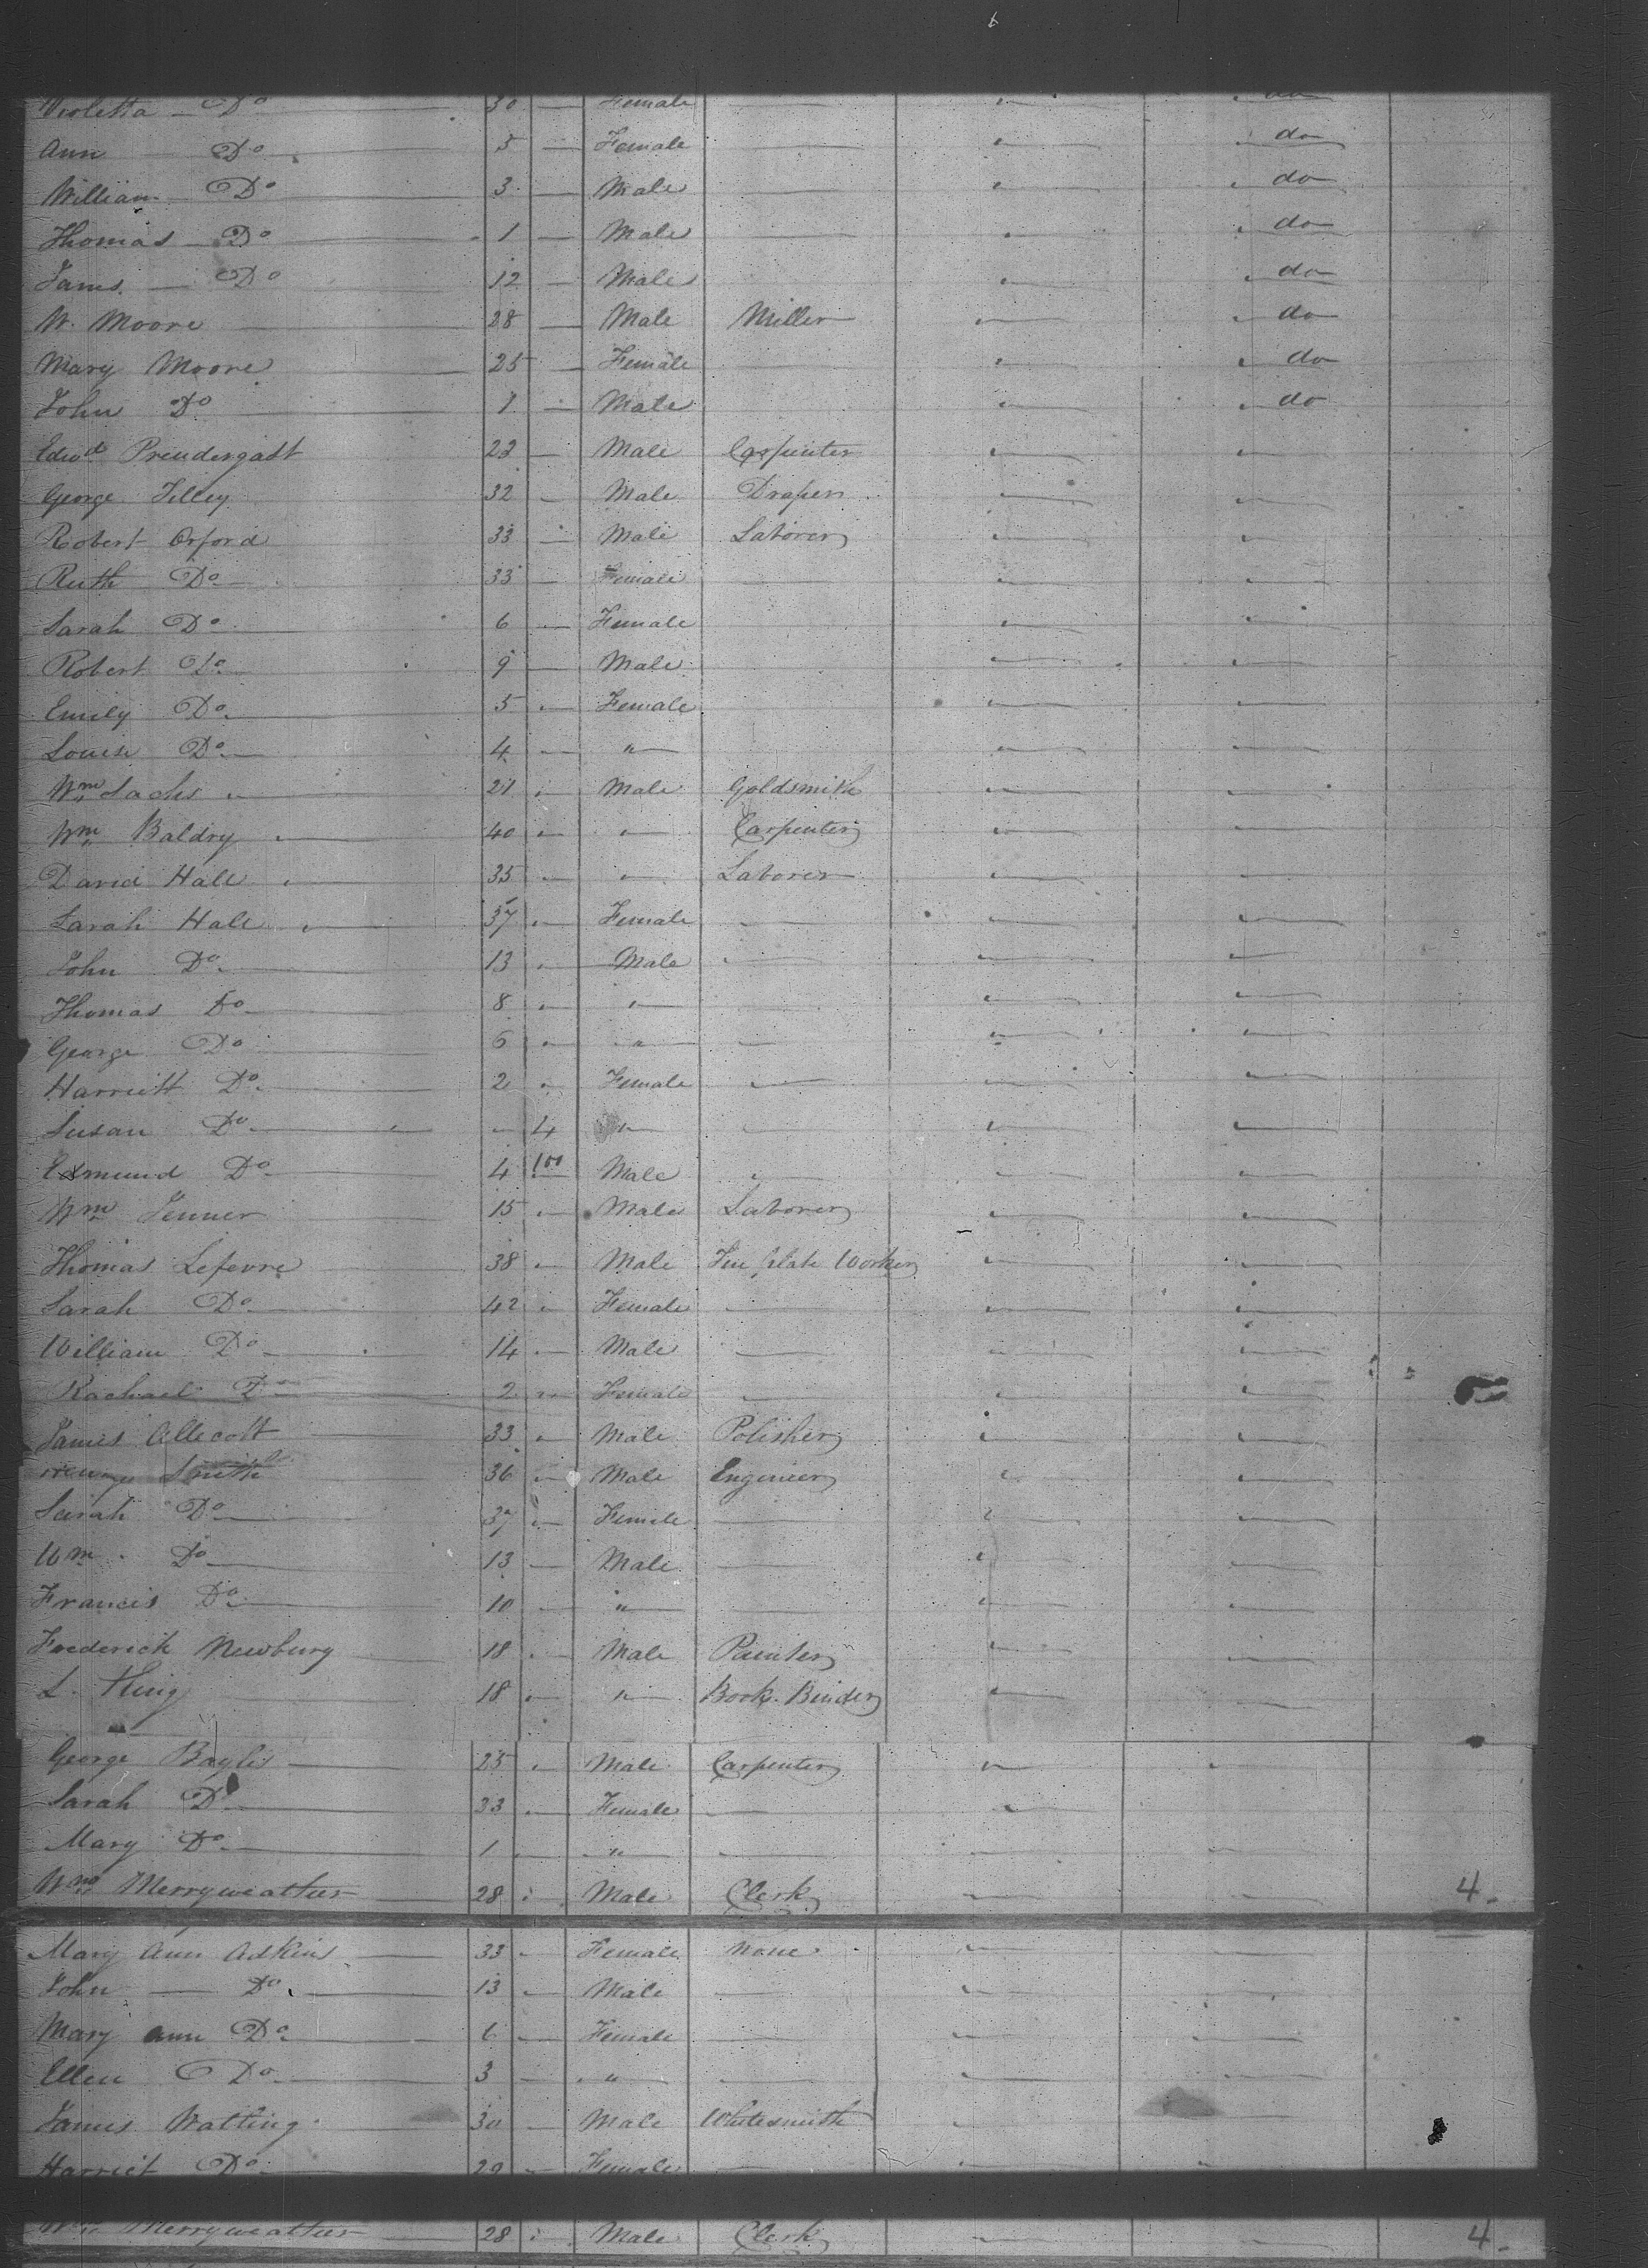 Violetta — Do — 30 — Female — " " do
Ann — Do 5 — Female — " " do
William Do 3 — Male — " " do
Thomas — Do 1 — Male — " " do
James — Do 12 — Male " " do
W. Moore 28 — Male Miller " " do
Mary Moore 25 — Female " " do
John Do 1 " Male " " do
Edwd Prendergast 22 — Male Carpenter " "
George Tilley 32 — Male Draper " "
Robert Orford 33 " Male Laborer " "
Ruth Do 33 — Female " "
Sarah Do 6 — Female " "
Robert Do 9 — Male " "
Emily Do 5 " Female " "
Louise Do 4 " " " "
Wm Sachs " 21 " Male Goldsmith " "
Wm Baldry " 40 " " Carpenter " "
David Hall " 35 " " Laborer " "
Sarah Hall " 37 " Female " " "
John Do 13 " Male " " "
Thomas Do 8 " " — " "
George Do 6 " " — " "
Harriett Do 2 " Female " " "
Susan Do " " 4 " " " "
Edmund Do 4 Male " " "
Wm Jenner 15 " Male Laborer " "
Thomas Lefevre 38 " Male Tin Plate Worker " "
Sarah Do 42 " Female " " "
William Do 14 " Male — " "
Rachael Do 2 " Female " " "
James Allecott 33 " Male Polisher " "
Henry Smith 36 " Male Engineer " "
Sarah Do 37 " Female — " "
Wm Do 13 — Male — " "
Francis Do 10 — " — " "
Frederick Newbury 18 " Male Painter " "
L. King 18 " " Book Binder " "
George Baylis 25 " Male Carpenter " "
Sarah Do 33 " Female — " 
Mary Do 1 " " — " "
Wm Merryweather 28 " Male Clerk " " 4
Mary Ann Adkins 33 " Female None " "
John — Do 13 " Male — " "
Mary Ann Do 6 — Female — " "
Ellen Do 3 — " — " "
James Watling 30 — Male Whitesmith " "
Harriet Do 29 — Female — " "
Wm Merryweather 28 " Male Clerk — — 4